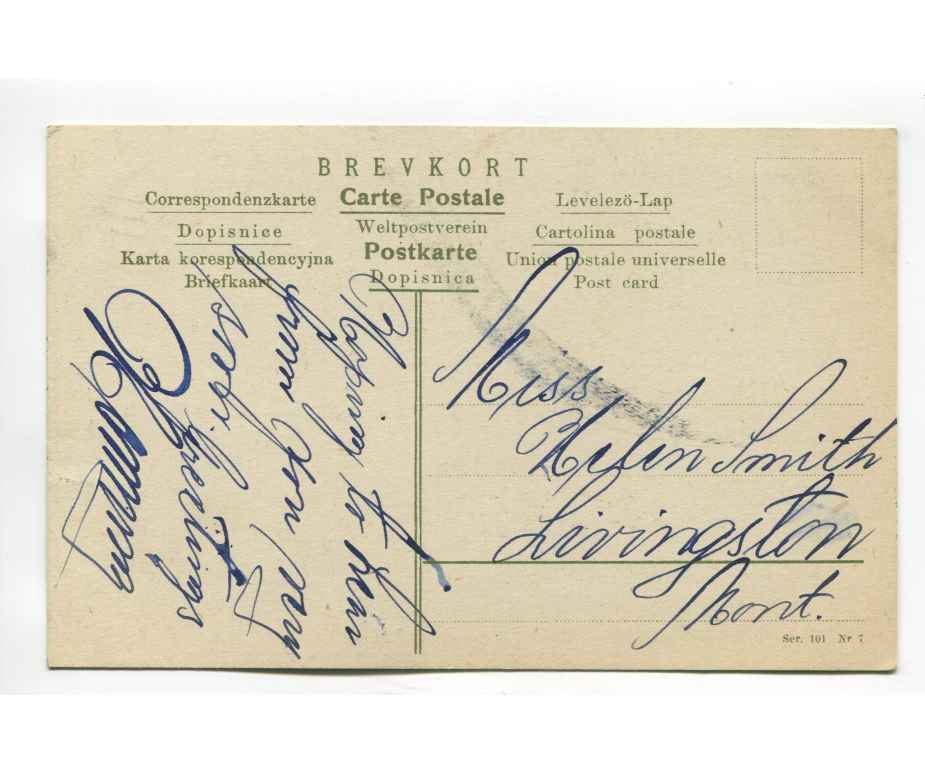 BREVKORT
Correspondenzkarte
Carte Postale
Levelezö-Lap
Dopisnice
Weltpostverein
Cartolina postale
Karta korespondencyjna
Postkarte
Union postale universelle
Briefkaart
Dopisnica
Post card
to hear
from you
Greetings
Miss
Helen Smith
Livingston
Mont.
Ser. 101 Nr 7